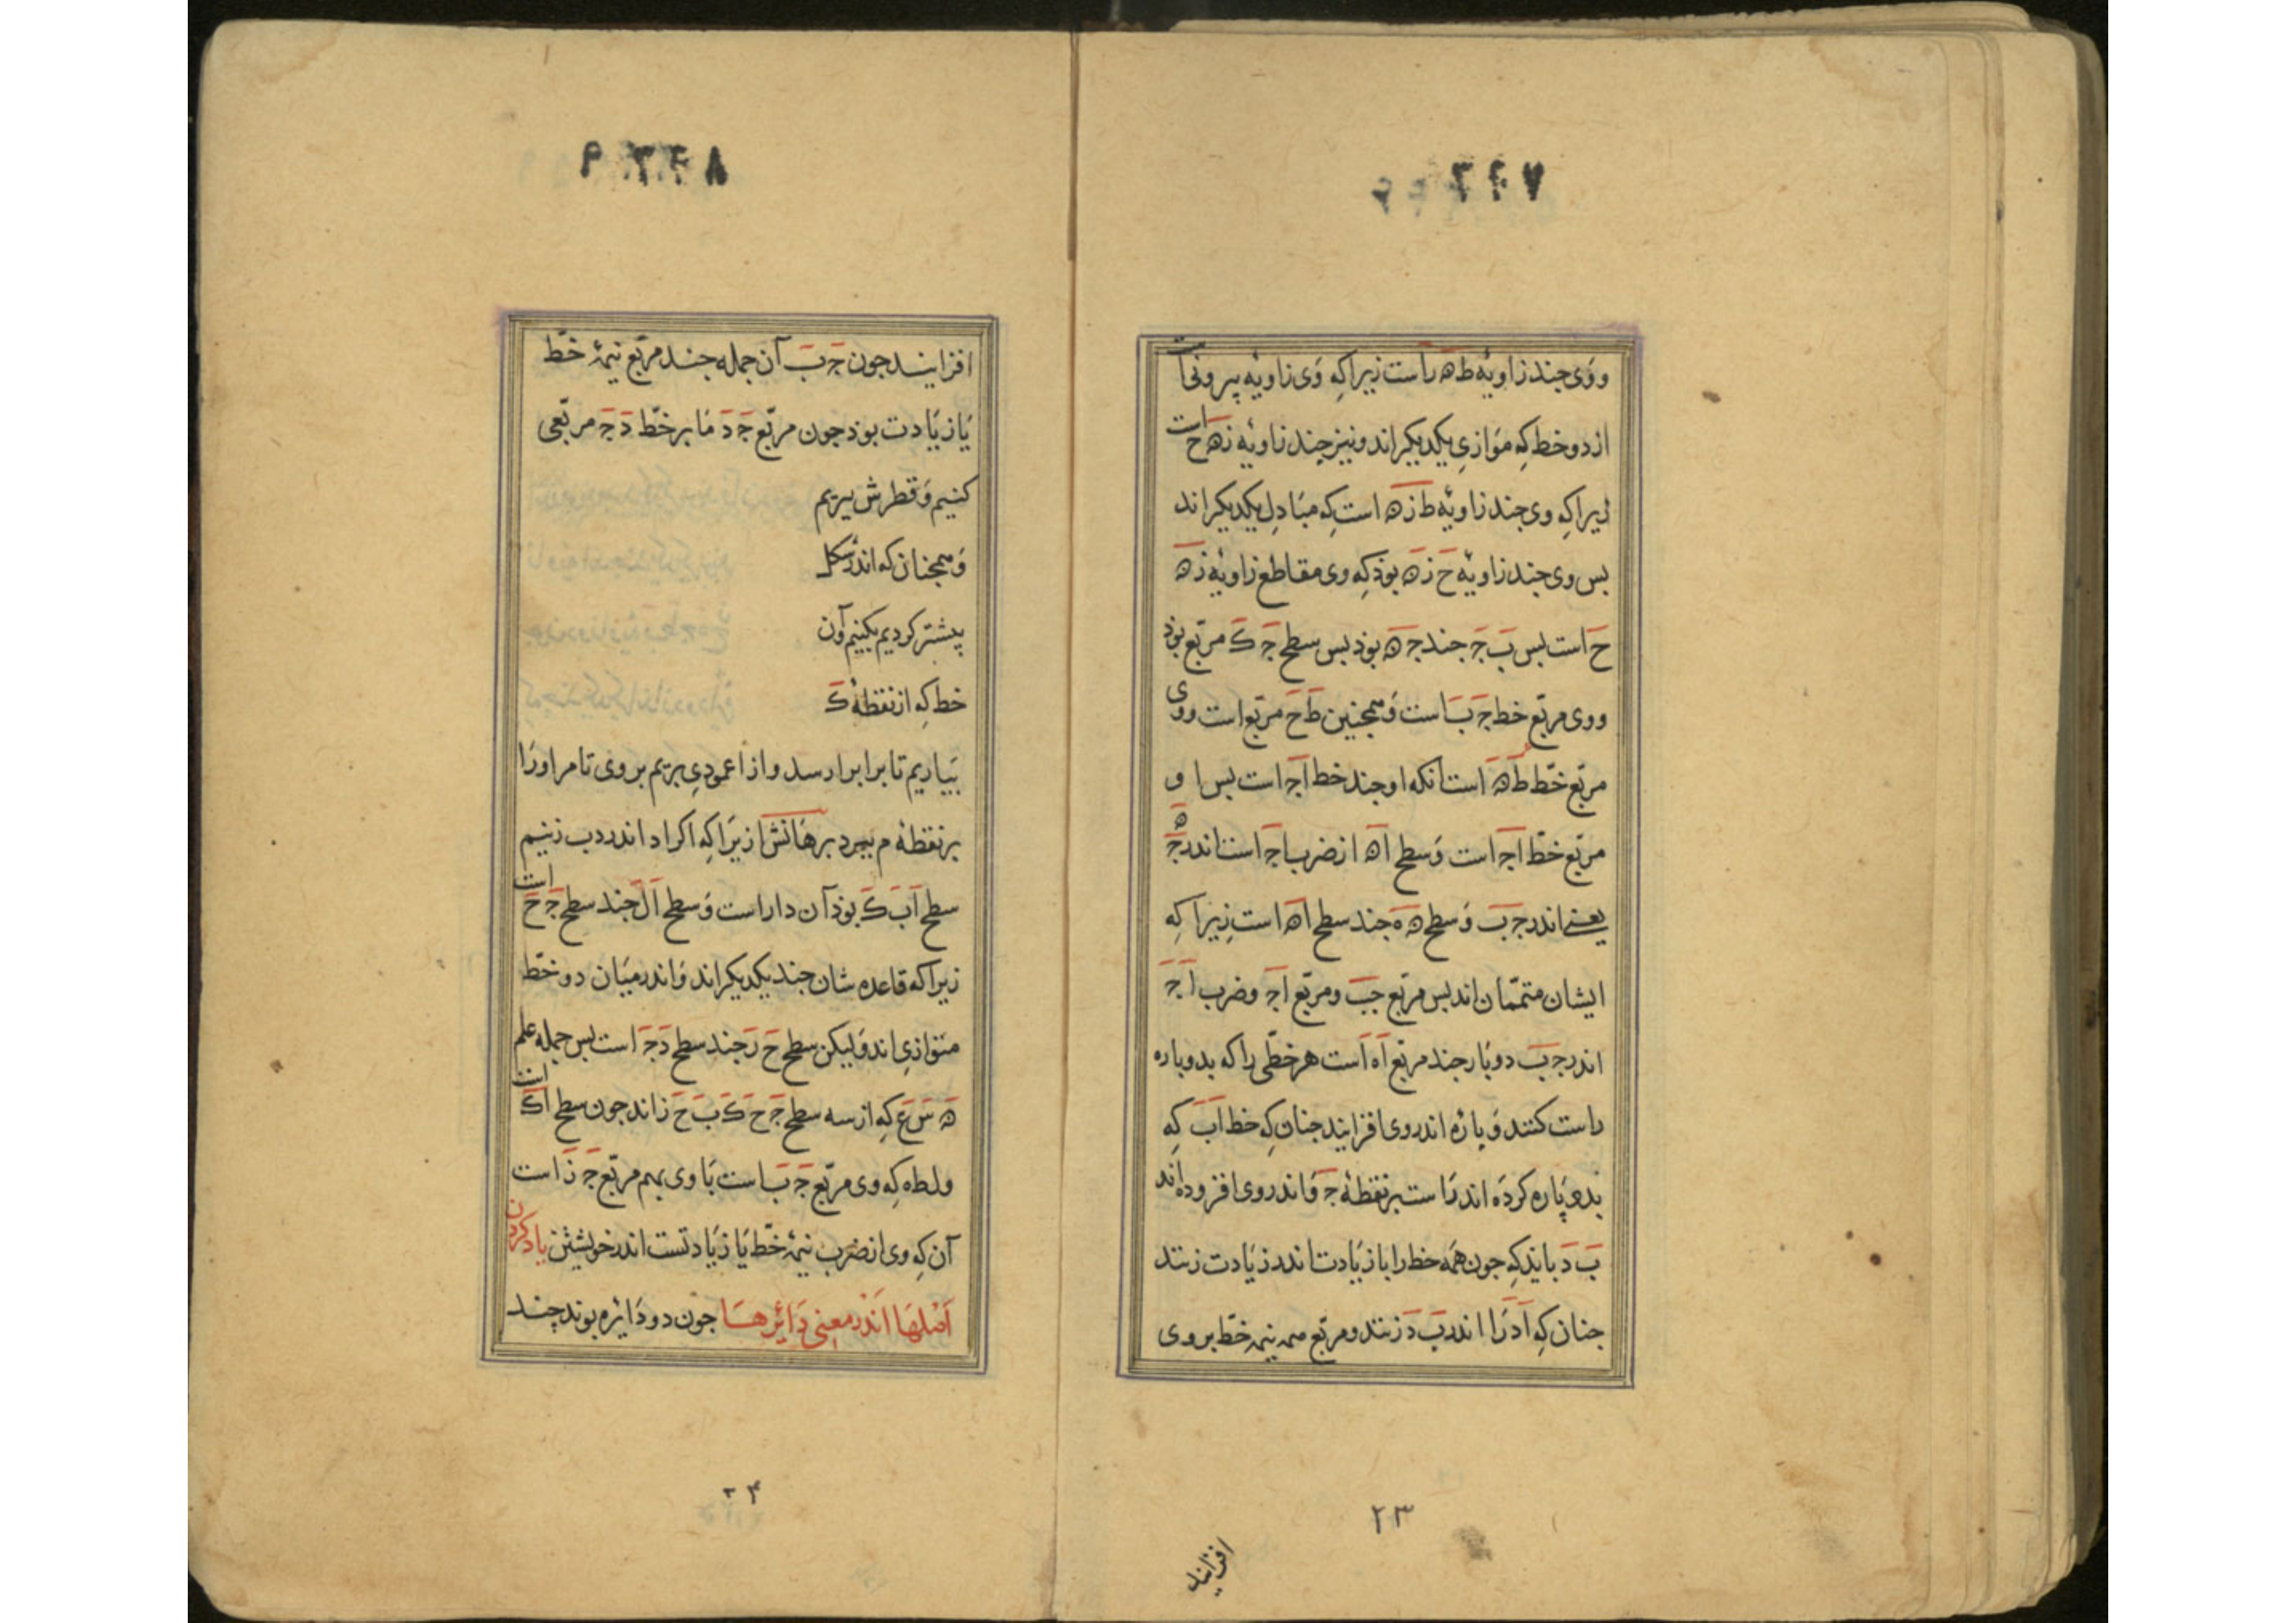 ووی جند زاویهٔ ط ه راست زیرا کِه وَی زاویه بیرونی است
از دو خط کِه مَوازیِ یکدیکراند ونیز جند زاویهٔ زه ح است
زیرا کِه وی جند زاویهٔ ط زه است کِه مبَادِلِ یکدیکراند
بس وی جند زاویهٔ ح زه بوذ کِه وی مقاطع زاویهٔ زه
ح است بس ب ج جند ج ه بوذ بس سطح ج ک مربّع بوذ
ووی مربّع خط ج ب است وَهمجنین ط ح مربّع است ووی
مربّع خطّ ط ه است انکه او جند خط اج است بس ا و
مربّع خطّ اج است وَسطح اه از ضرب اج است اندر ج ه
یعنی اندر ج ب وَسطح ه ه جند سطح اه است زیرا کِه
ایشان متممّان اند بس مربّع جب ومربّع اج وضرب اج
اندر ج ب دوبَار جند مربّع اه است هر خطّی را که بدو باره
راست کنند وَبارهٔ اندر وی افزایند جنان کِه خط اب کِه
بدو پَاره کردَه اند رَاست بر نقطهٔ ج وَاندر وی افزوده اند
ب د بایَد کِه جون همَه خط را با زیَادت اندر زیَادت زنند
جنان کِه اد رَا اندر ب د زنند ومربّع نیمهٔ خطّ بر وی
۲۳
افزایند
افزایند جون ج ب آن جمله جند مربّع نیمهٔ خطّ
بَا زیَادت بوذ جون مربّع ج د مَا بر خطّ د ج مربّعی
کنیم وَقطرش ببریم
وَهمجنان که اندر شکل
پیشتر کردیم بکنیم وآن
خط کِه از نقطهٔ ک
بیَاریم تا برابر ا رسد واز ا عمودیِ بریم بر وی تا مر او رَا
بر نقطهٔ م ببرد برهَانش ازیرَا کِه اکر اد اندر دب زنیم
سطح اب ک بوذ آن داراست وَسطح ال جند سطح ج ح است
زیرا که قاعده شان جند یکدیکراند وَاندر میَان دو خطّ
متوَازیِ اند وَلیکن سطح ح ز جند سطح د ج است بس جمله علم
ه س ع کِه از سه سطح ج ح ک ب ح ز اند جون سطح اک است
ولطه کِه وی مربّع ج ب است بَا وی بهم مربّع ج ز است
آن کِه وی از ضرب نیمهٔ خطّ بَا زیَادتست اندر خویشتن یاد کردن
اَصْلهَا اَنْدر معنی دَائرهسَا جون دو دَایره بوند چند
۲۴